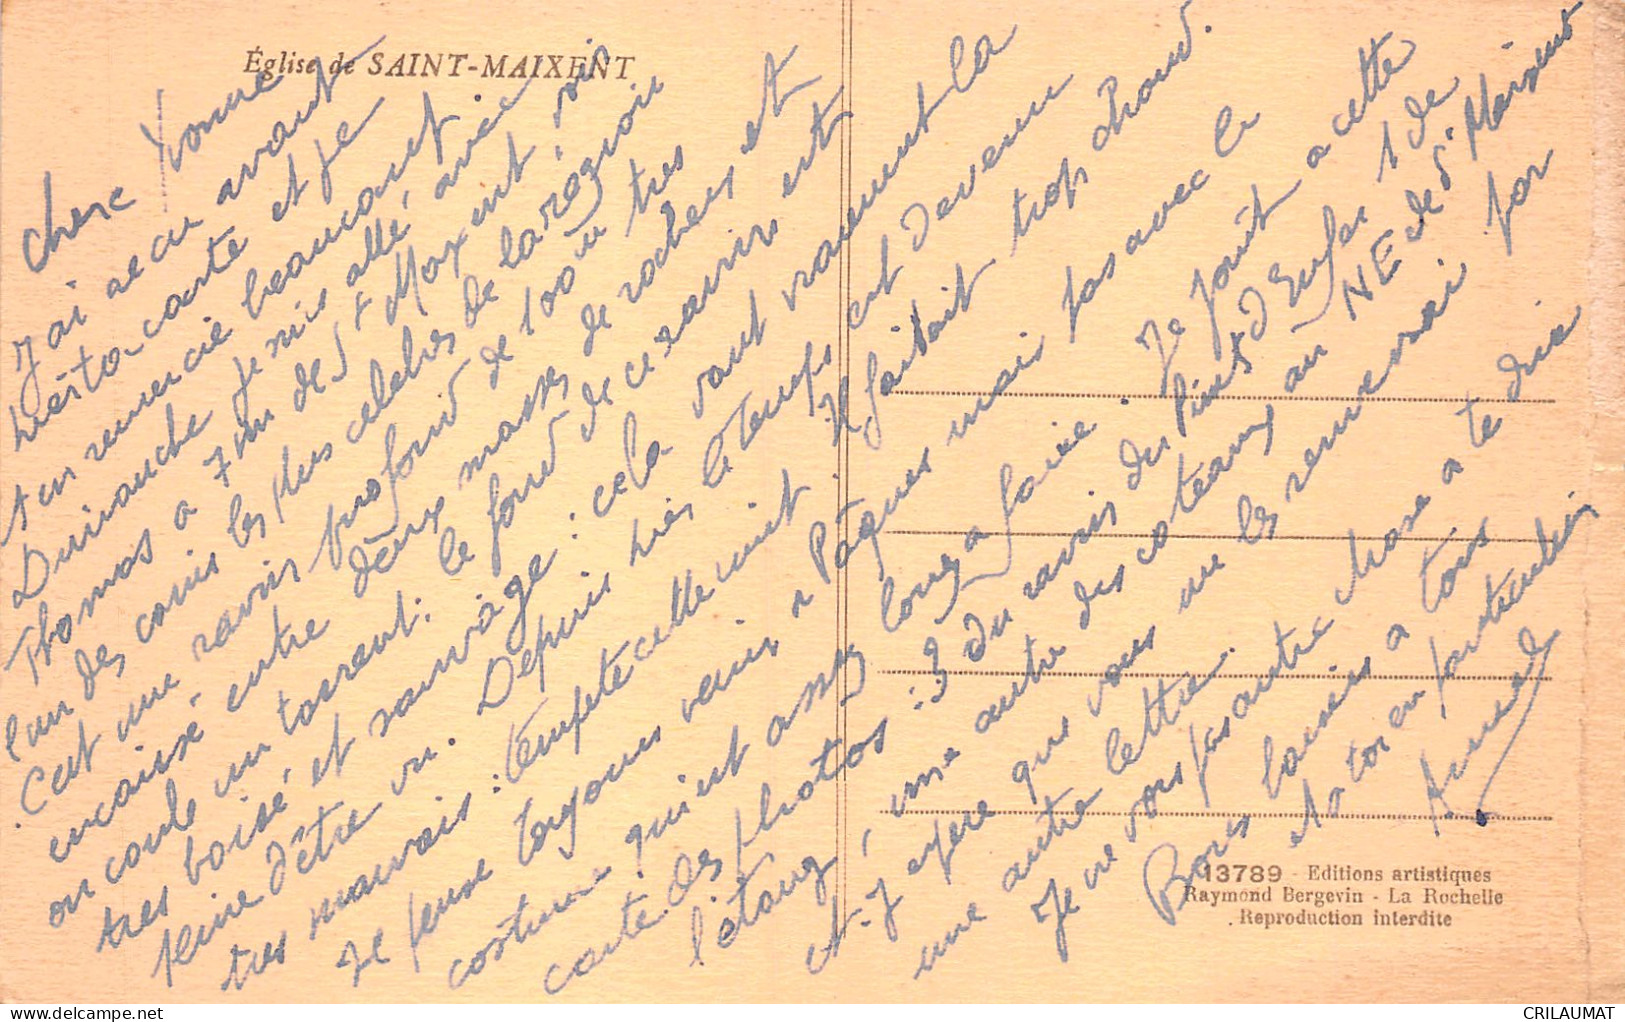 Église de SAINT-MAIXENT
Chere Yvonne
J'ai reçu avant
hier ta carte et je
t'en remercie beaucoup.
Dimanche je suis allé avec
Thomas a 7 km de St Maixent voir
l'un des coins les plus celebres de la région
C'est une ravin profond de 100 m tres
encaissé entre deux masses de rochers et
ou coule un torrent. le fond de ce ravin est
tres boisé et sauvage : cela vaut vraiment la
peine d'être vu. Depuis hier le temps est devenu
tres mauvais : tempête cette nuit. Il faisait trop chaud.
Je pense toujours venir a Pâques mais pas avec le
costume qui est assez long a faire. Je joint a cette
carte des photos : 3 du ravin du Puits d'Enfer 1 de
l'étang, une autre des coteaux au NE de St Maixent
et j'espere que vous me les renverrai par
une autre lettre.
Je ne vois pas autre chose a te dire
Bons baisers a tous
et a toi en particulier
13789 - Editions artistiques
Raymond Bergevin - La Rochelle
Reproduction interdite
CRILAUMAT